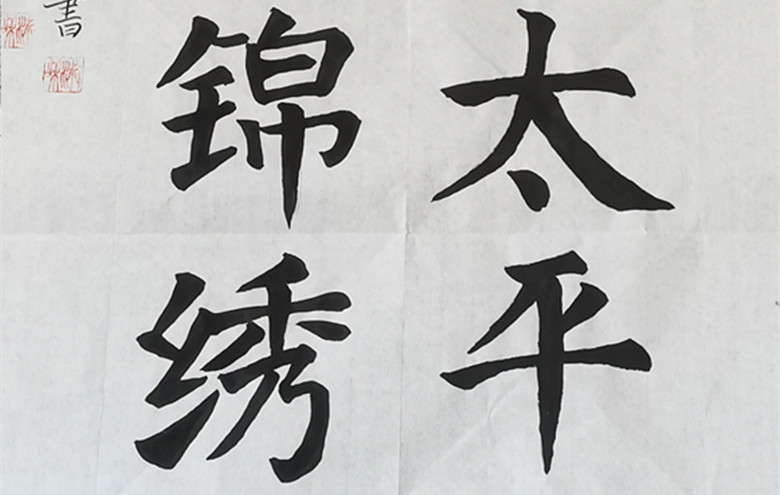 太平
锦绣
書